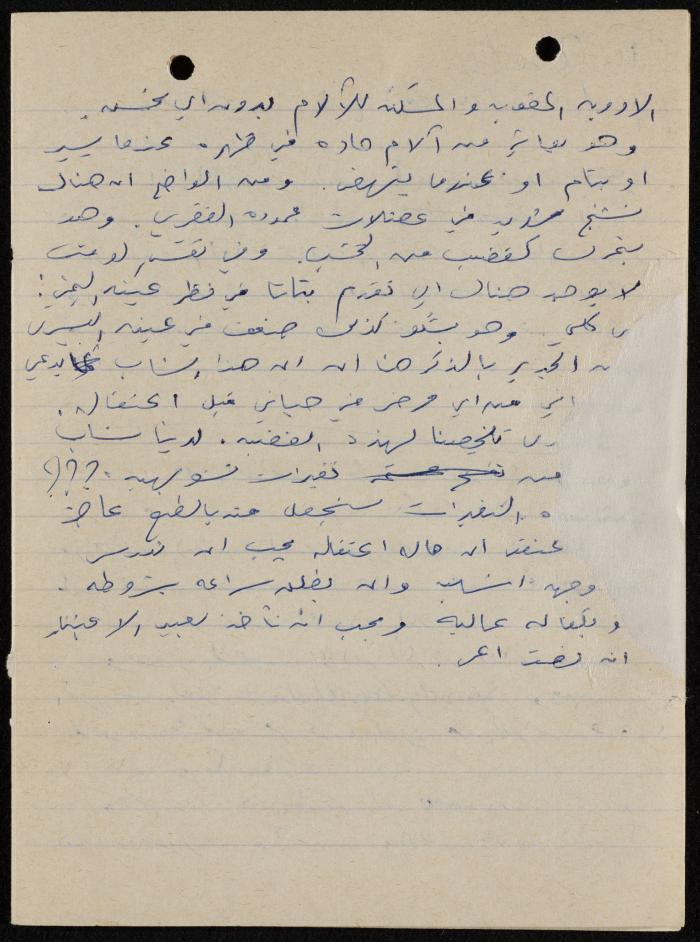 الادوية المقوية والمسكنة للآلام بدون اي تحسن.
وهو يعاني من آلام حاده في ظهره عندما يسير
او ينام او عندما ينهض. ومن الواضح ان هناك
تشنج شديد في عضلات عموده الفقري. وهو
يتحرك كقضيب من الخشب. وفي نفس الوقت
لا يوجد هناك اي تقدم بتاتا في نظر عينه اليمنى:
كلي. وهو يشكو كذلك ضعف في عينه اليسرى
الجدير بالذكر هنا ان هذا الشاب يدعي
اي من اي مرض في حياتي قبل اعتقال.
تلخيصنا لهذه القضية. لدينا شاب
من تغيرات تشويهيه. ؟؟؟
التغيرات ستجعل منه بالطبع عاجز
نعتقد ان حالة اعتقاله يجب ان تدرس
وجهة وان يطلق سراحه بشروط
وبكفاله عالية ويجب ان نأخذ بعين الاعتبار
انه نصف اعمى.